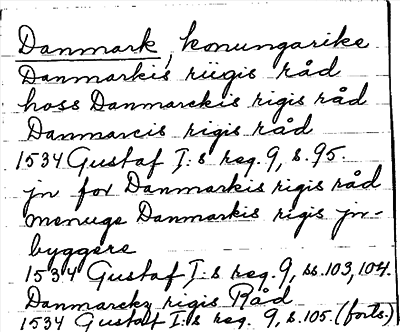 Danmark, konungarike
Danmarkis riigis råd
hoss Danmarckis rigis råd
Danmarcis rigis råd
1534 Gustaf I:s reg. 9, s. 95.
jn for Danmarkis rigis råd
menuge Danmarkis rigis jn-
byggere
1534 Gustaf I:s reg. 9, ss. 103, 104.
Danmarckz rigis Råd
1534 Gustaf I:s reg. 9, s. 105. (forts.)